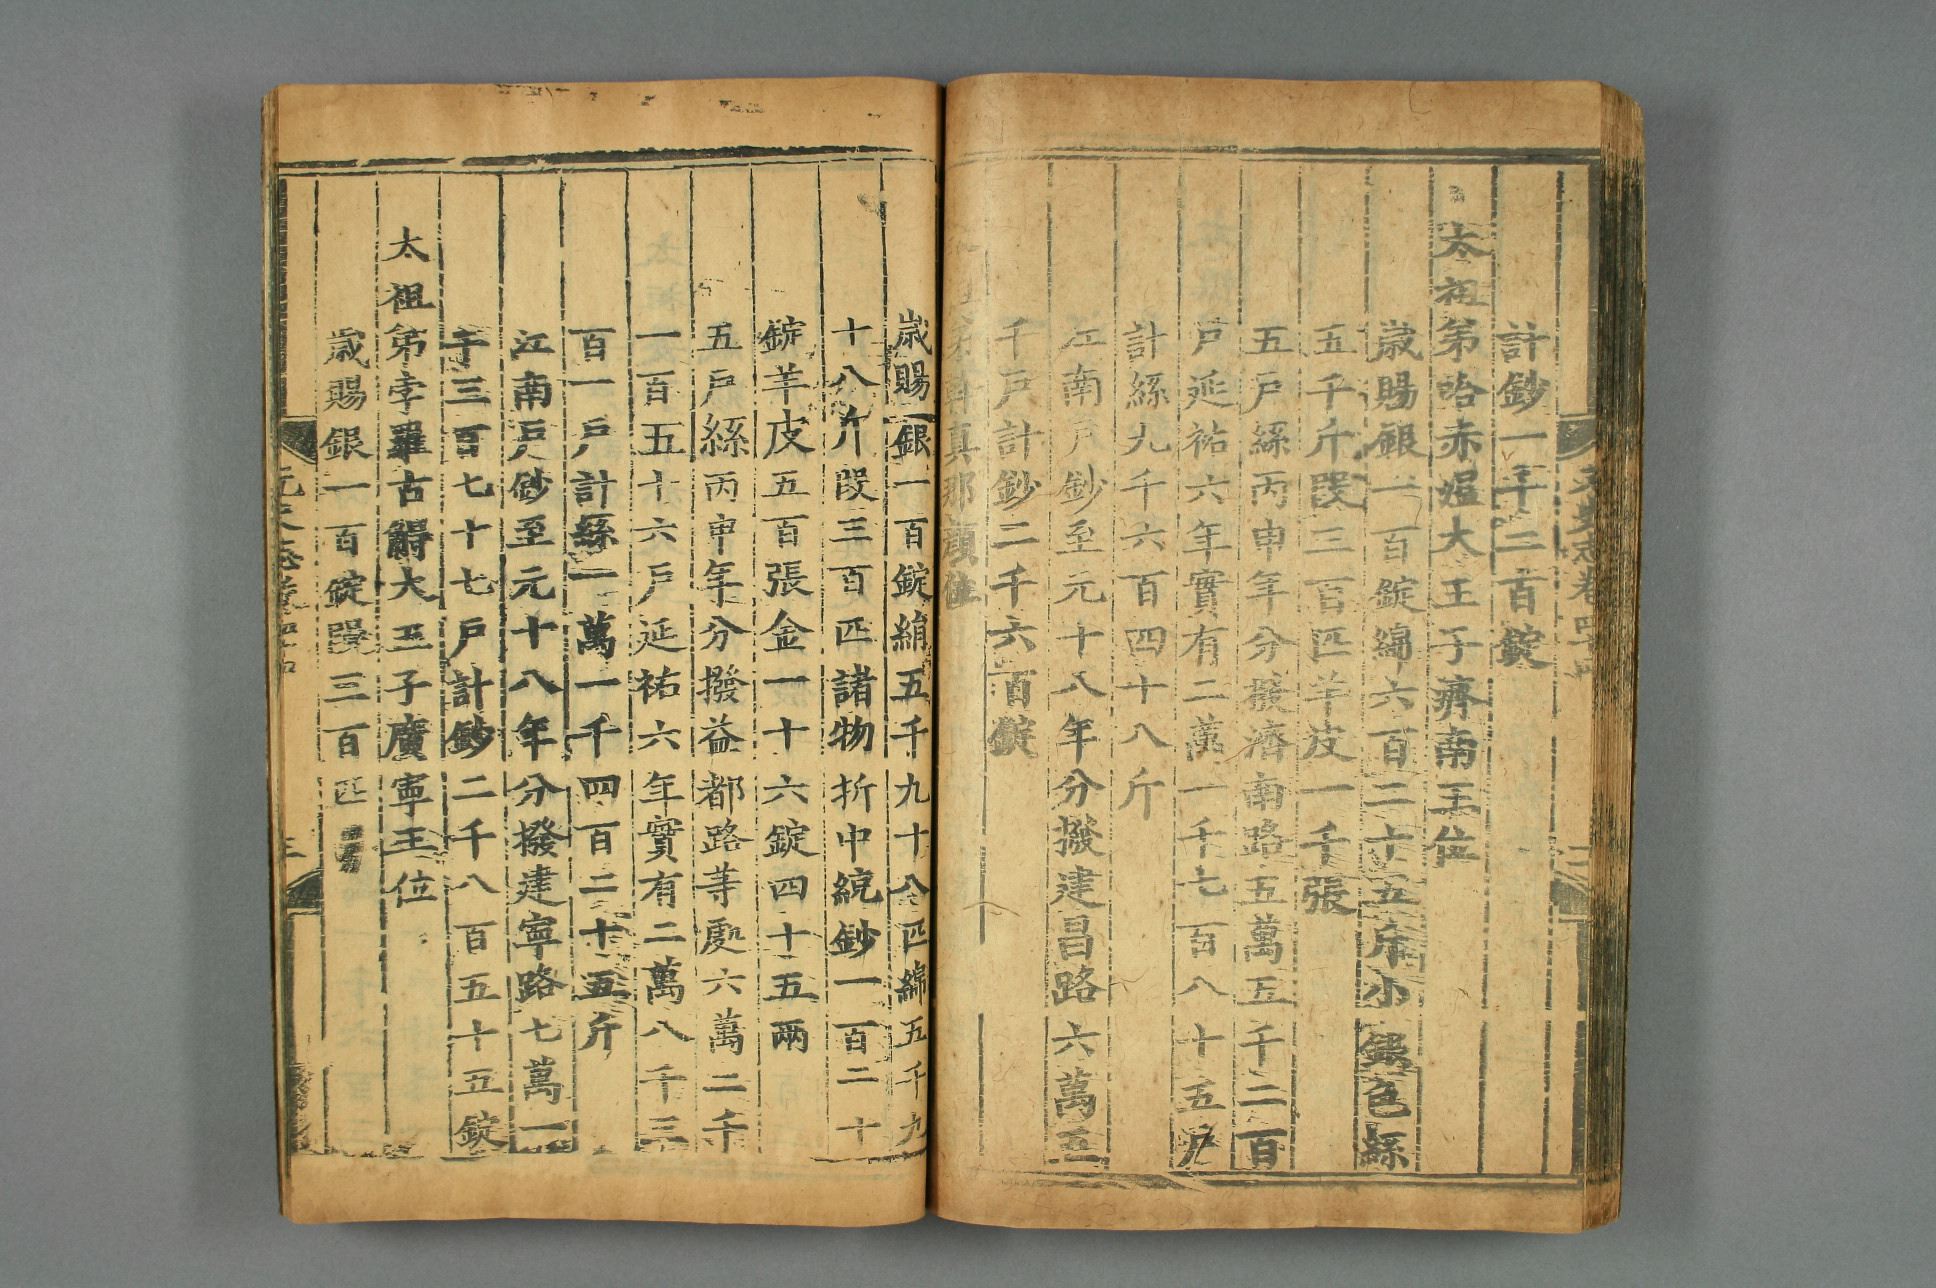 元史志卷四十四
二
計鈔一千二百錠
太祖第哈赤溫大王子濟南王位
歲賜銀一百錠綿六百二十五斤小銀色絲
五千斤段三百匹羊皮一千張
五戶絲丙申年分撥濟南路五萬五千二百
戶延祐六年實有二萬一千七百八十五戶
計絲九千六百四十八斤
江南戶鈔至元十八年分撥建昌路六萬五
千戶計鈔二千六百錠
真那顏位
歲賜銀一百錠絹五千九十八匹綿五千九
十八斤段三百匹諸物折中統鈔一百二十
錠羊皮五百張金一十六錠四十五兩
五戶絲丙申年分撥益都路等處六萬二千
一百五十六戶延祐六年實有二萬八千三
百一戶計絲一萬一千四百二十五斤
江南戶鈔至元十八年分撥建寧路七萬一
千三百七十七戶計鈔二千八百五十五錠
太祖第孛羅古䚟大王子廣寧王位
歲賜銀一百錠段三百匹
元史志卷四十四
三